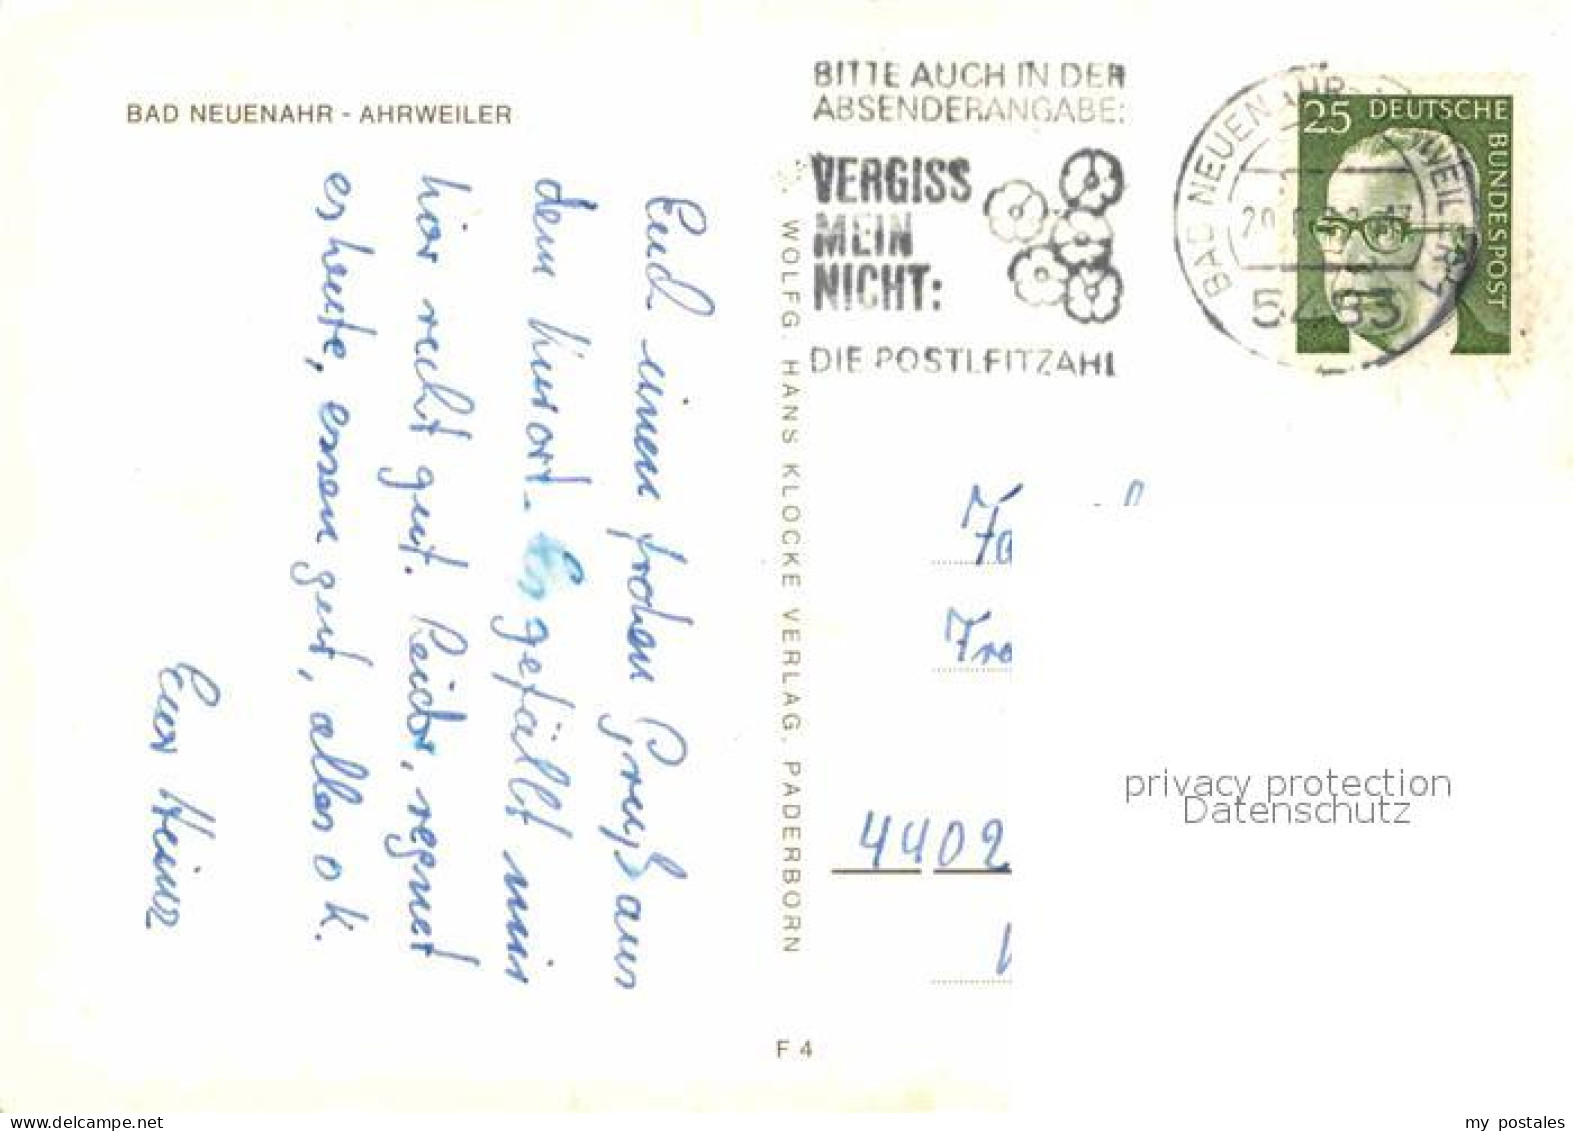 BAD NEUENAHR - AHRWEILER
BITTE AUCH IN DER
ABSENDERANGABE:
VERGISS
MEIN
NICHT:
DIE POSTLEITZAHL
BAD NEUENAHR-AHRWEILER 1
5483
25 DEUTSCHE
BUNDESPOST
Euch einen frohen Gruß aus
dem Kurort. Es gefällt mir
hier recht gut. Leider, regnet
es heute, essen gut, alles o k.
Euer Heinz
WOLFG. HANS KLOCKE VERLAG, PADERBORN
Fa
4402
F 4
privacy protection
Datenschutz
delcampe.net
my postales